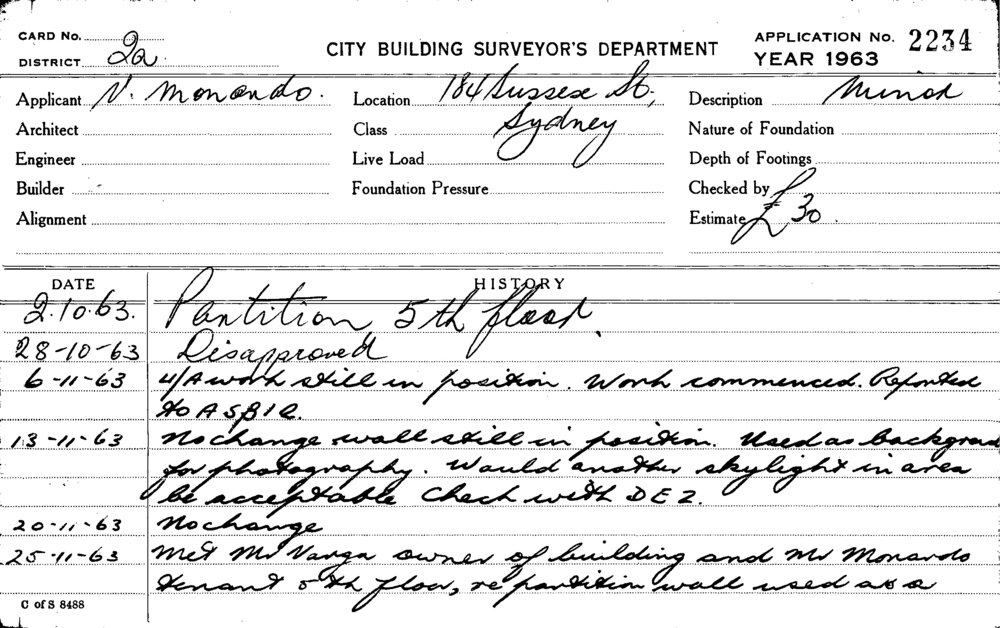 CARD No.
DISTRICT 2a
CITY BUILDING SURVEYOR'S DEPARTMENT
APPLICATION No. 2234
YEAR 1963
Applicant V. Monardo.
Location 184 Sussex St,
Description Minor
Architect
Class Sydney
Nature of Foundation
Engineer
Live Load
Depth of Footings
Builder
Foundation Pressure
Checked by
Alignment
Estimate £30.
DATE HISTORY
2.10.63. Partition 5th floor.
28-10-63 Disapproved
6-11-63 U/A work still in position. Work commenced. Reported
to A S B I 2.
13-11-63 No change wall still in position. Used as backgroud
for photography. Would another skylight in area
be acceptable Check with D E 2.
20-11-63 No change
25-11-63 Met Mr Varga owner of building and Mr Monardo
tenant 5th floor, re partition wall used as a
C of S 8488